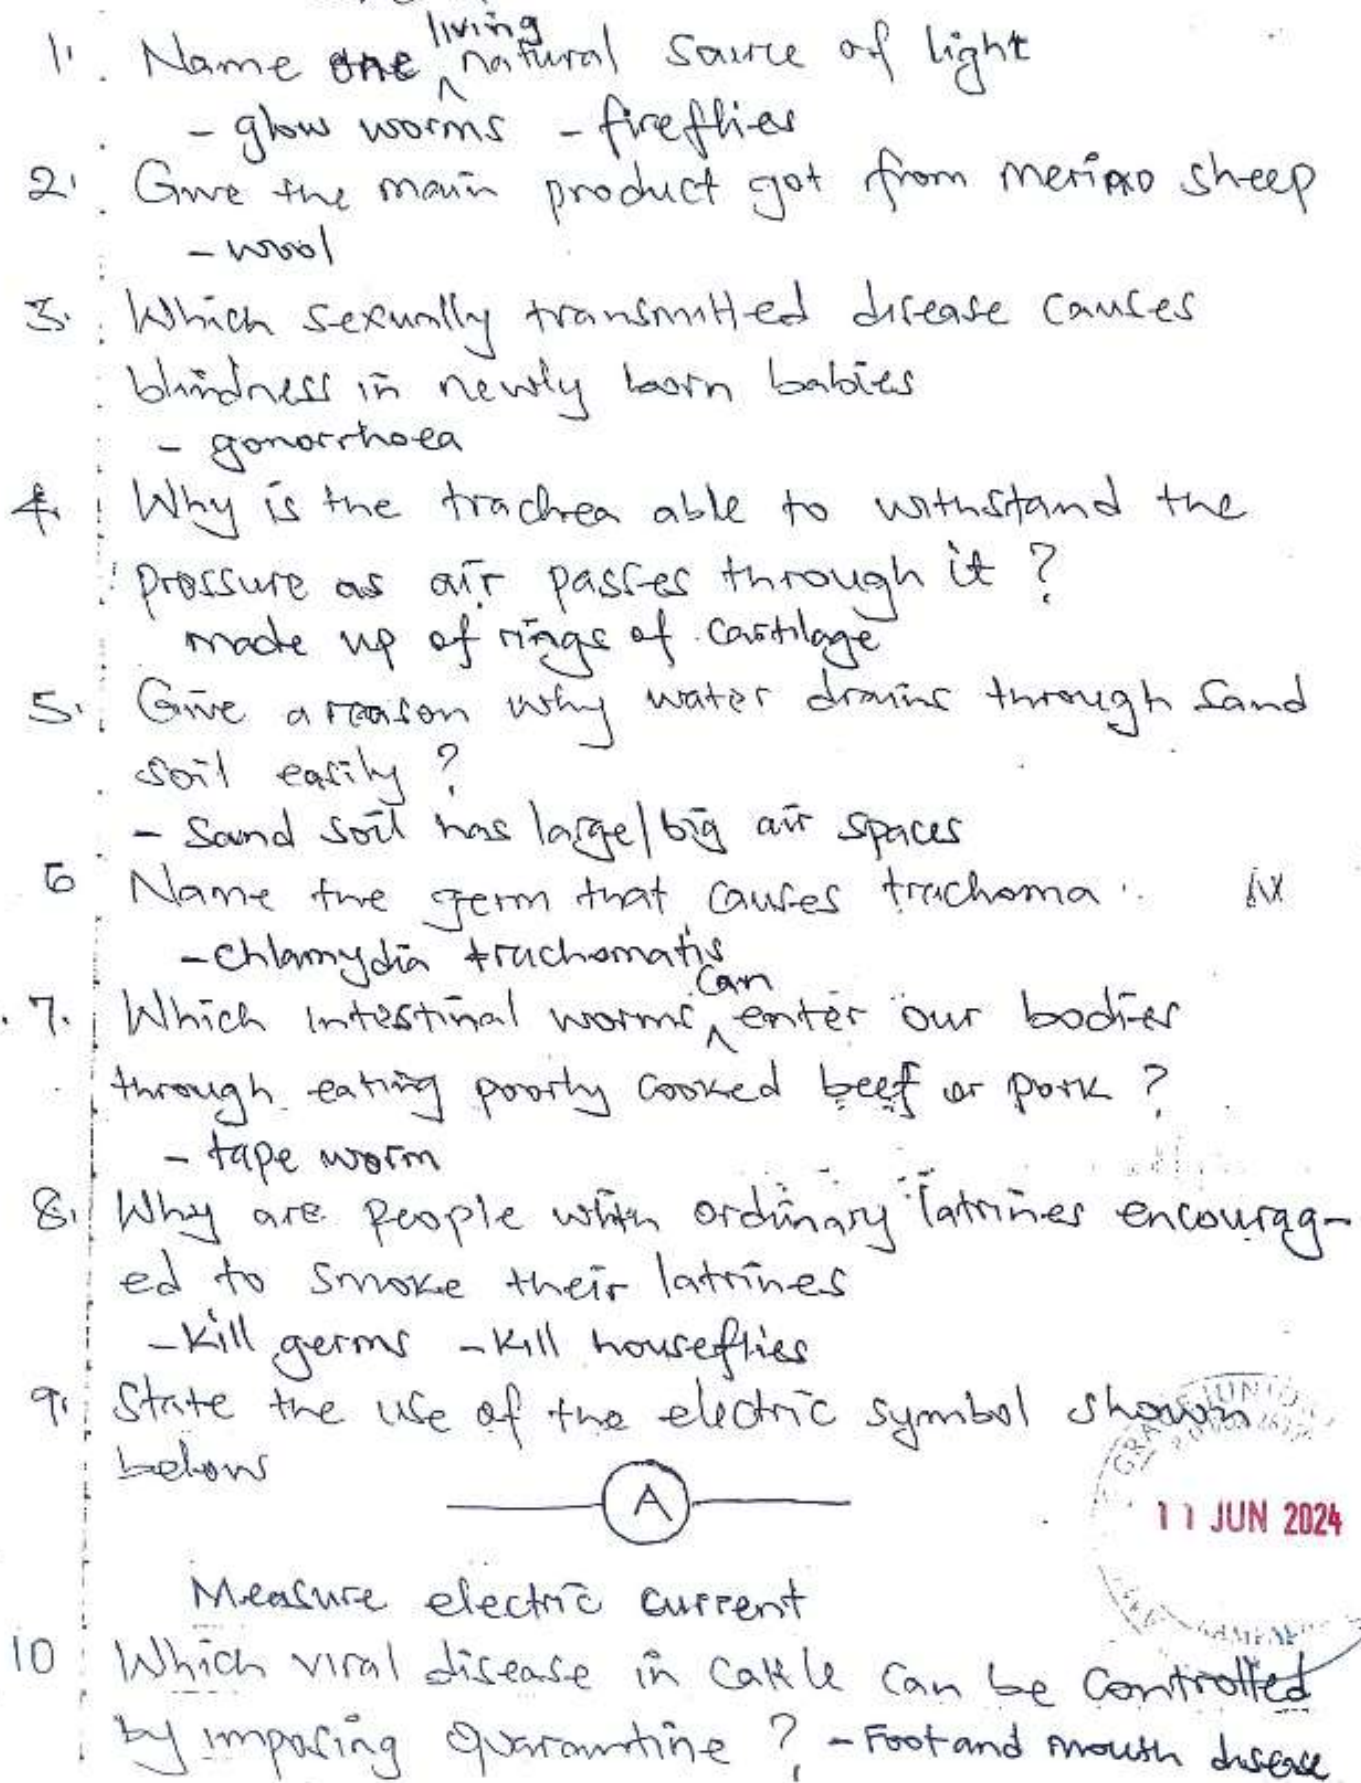 1. Name one living natural source of light
- glow worms - fireflies
2. Give the main product got from merino sheep
- wool
3. Which sexually transmitted disease causes
blindness in newly born babies
- gonorrhoea
4. Why is the trachea able to withstand the
pressure as air passes through it?
made up of rings of cartilage
5. Give a reason why water drains through sand
soil easily?
- Sand soil has large/big air spaces
6 Name the germ that causes trachoma.
- Chlamydia trachomatis
7. Which intestinal worms can enter our bodies
through eating poorly cooked beef or pork?
- tape worm
8. Why are people with ordinary latrines encourag-
ed to smoke their latrines
- Kill germs - Kill houseflies
9. State the use of the electric symbol shown
below
A
11 JUN 2024
Measure electric current
10 Which viral disease in cattle can be controlled
by imposing quarantine? - Foot and mouth disease